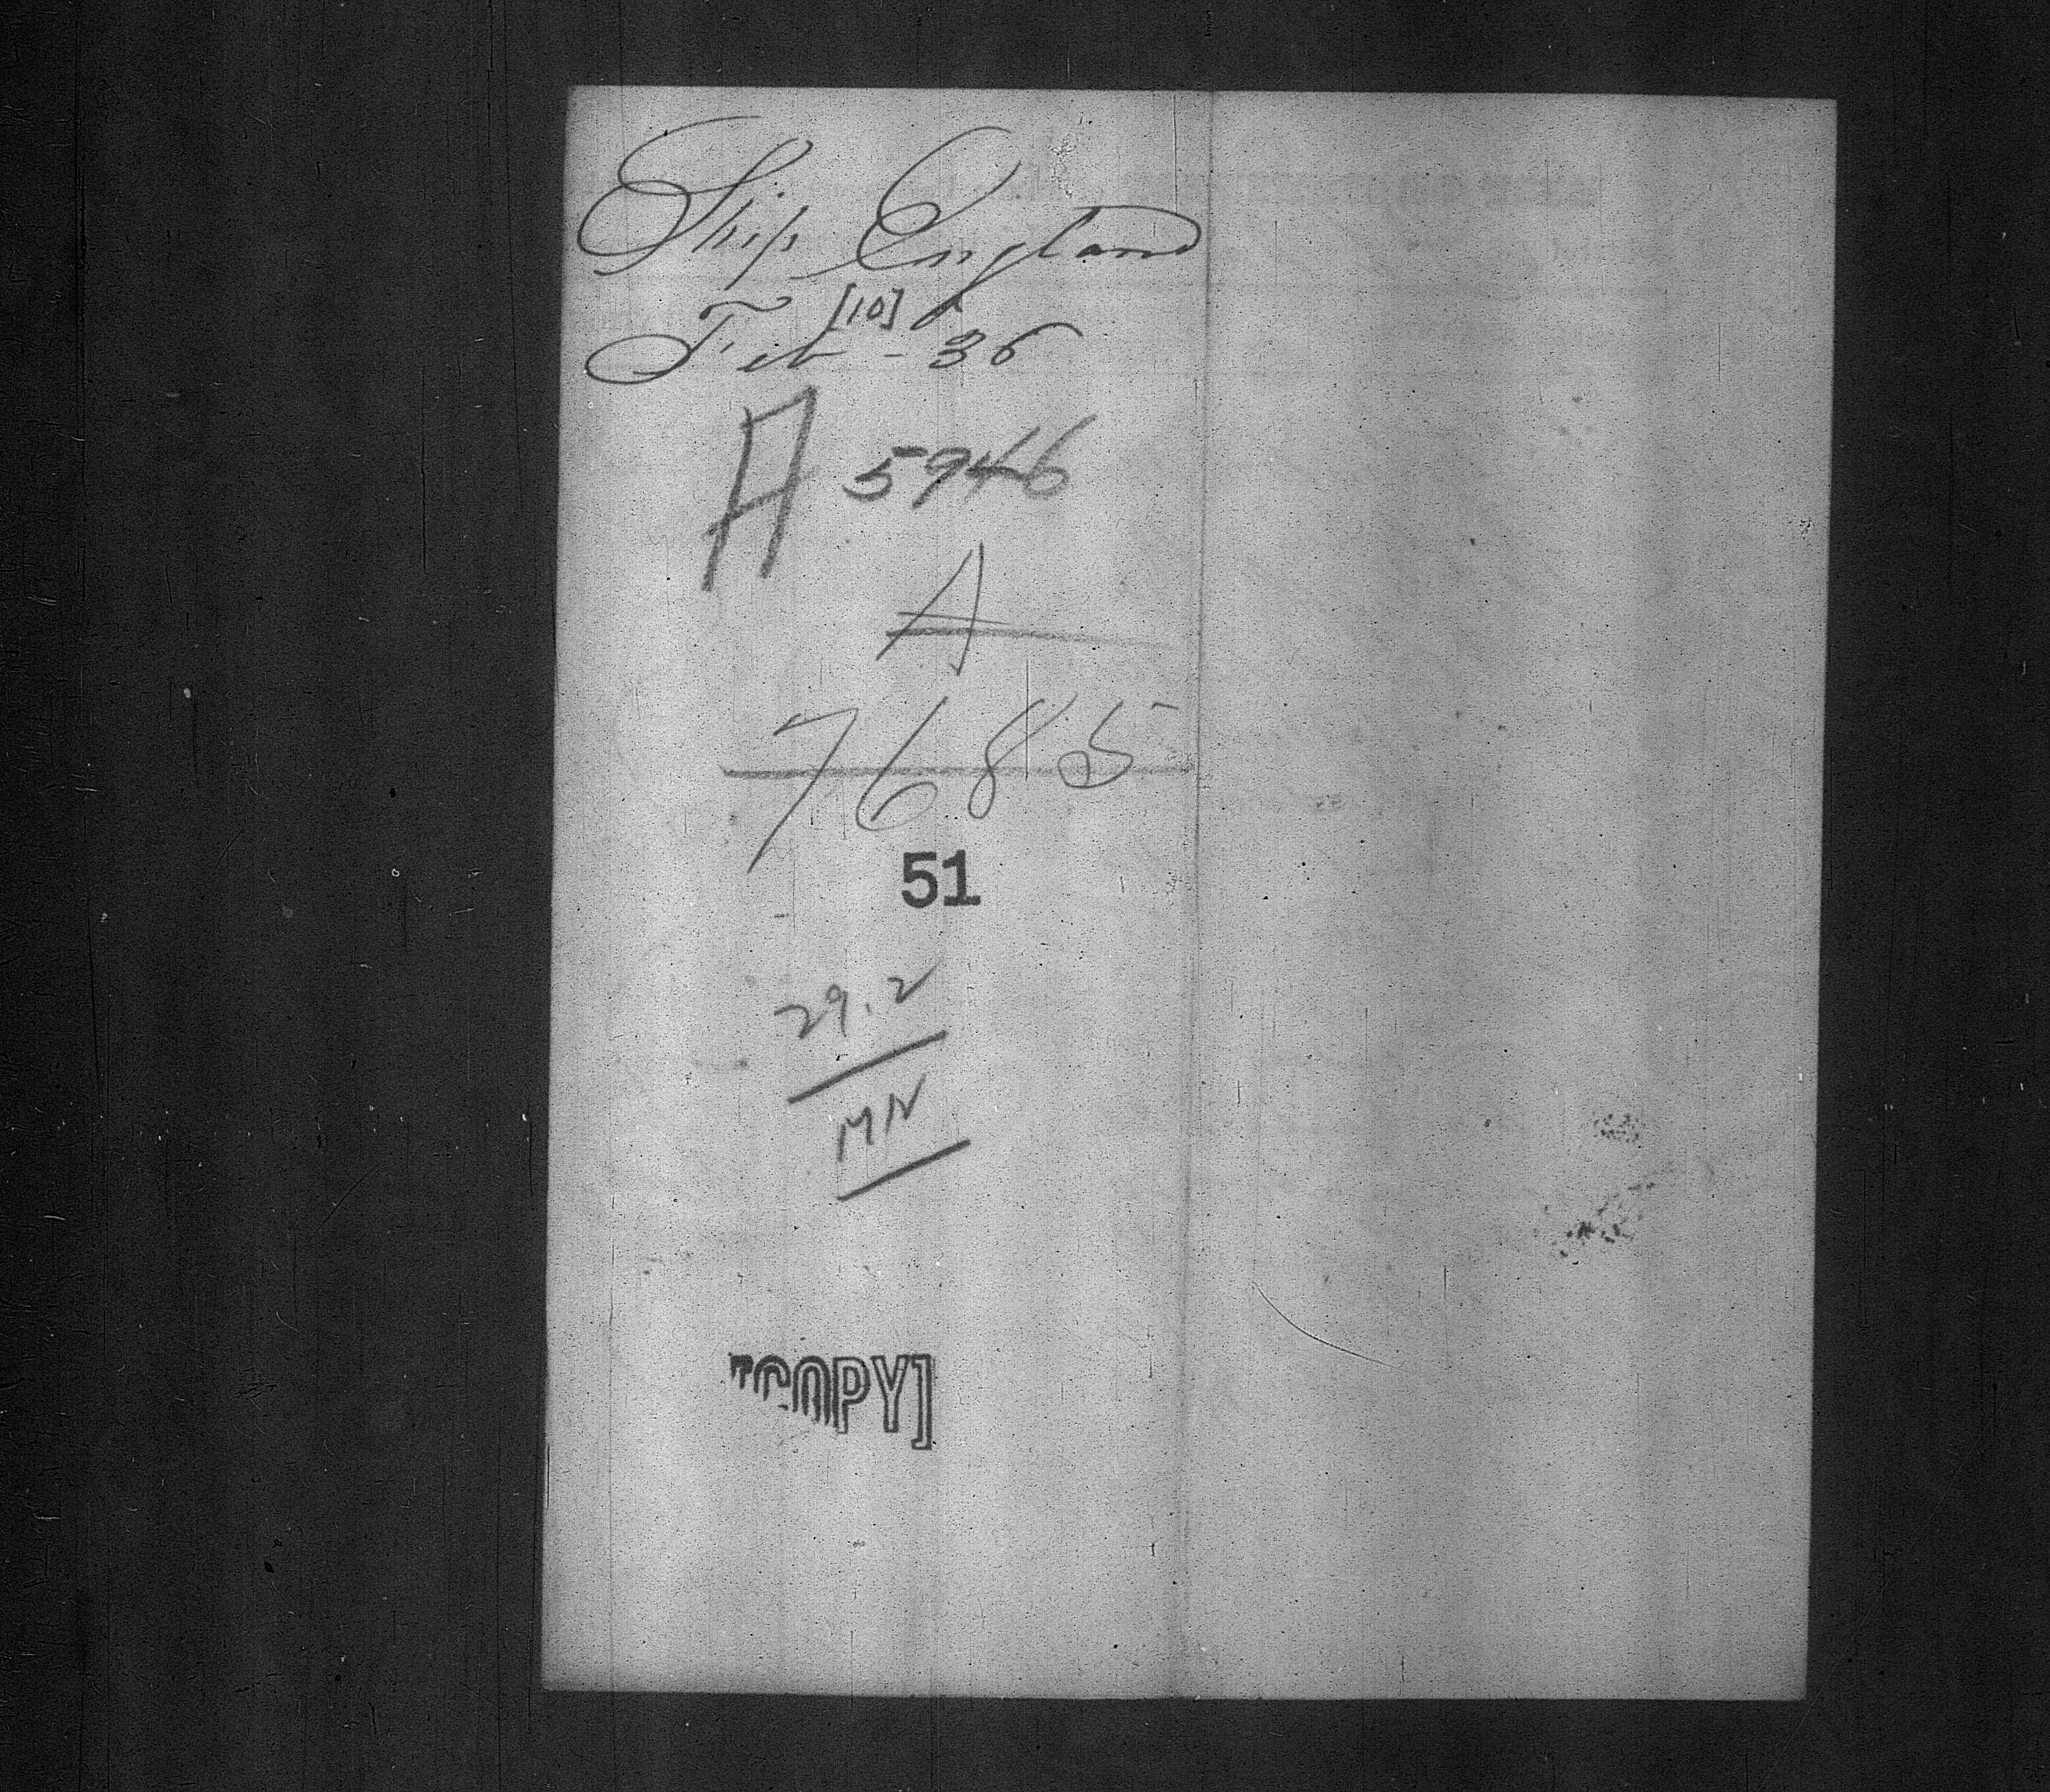 Ship England
[10]
Feb - 36
A 5946
A
7685
51
29.2
MN
[COPY]